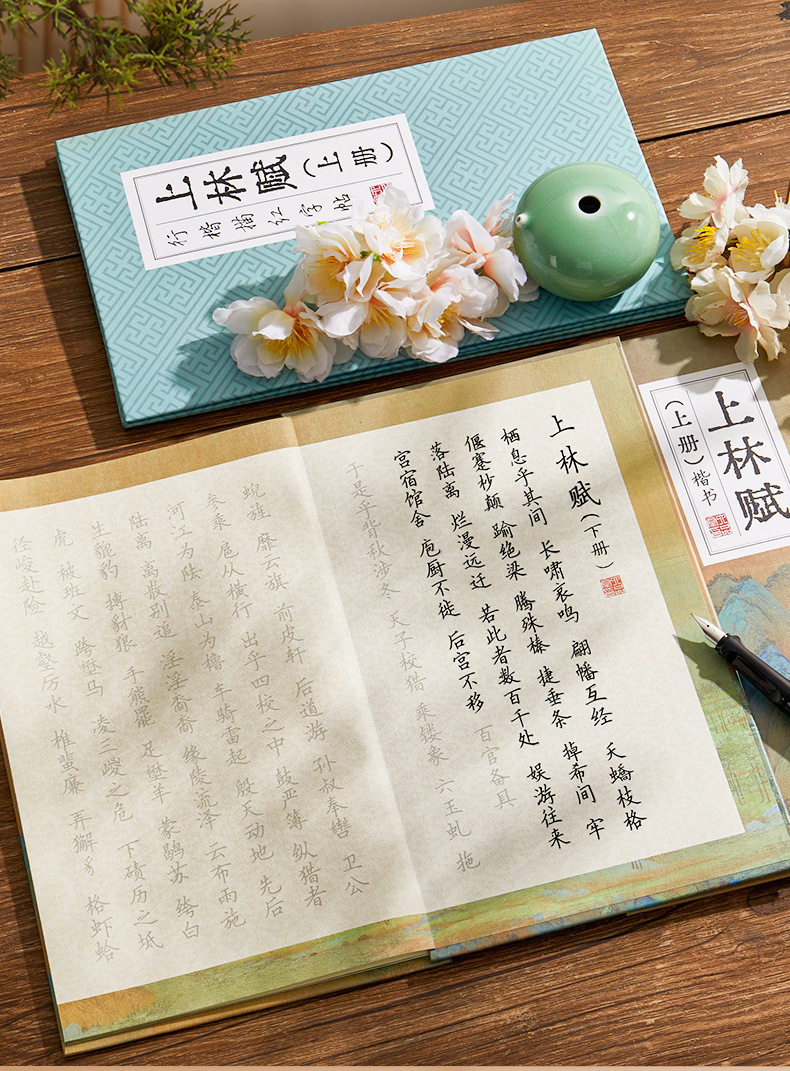 上林赋（上册）
行楷描红字帖
上林赋
（上册）楷书
上林赋（下册）
栖息乎其间 长啸哀鸣 翩幡互经 夭蟜枝格
偃蹇杪颠 踰绝梁 腾殊榛 捷垂条 掉希间 牢
落陆离 烂漫远迁 若此者数百千处 娱游往来
宫宿馆舍 庖厨不徙 后宫不移 百官备具
于是乎背秋涉冬 天子校猎 乘镂象 六玉虬 拖
蜺旌 靡云旗 前皮轩 后道游 孙叔奉辔 卫公
参乘 扈从横行 出乎四校之中 鼓严簿 纵猎者
河江为阹 泰山为橹 车骑雷起 殷天动地 先后
陆离 离散别追 淫淫裔裔 缘陵流泽 云布雨施
生貔豹 搏豺狼 手熊罴 足壄羊 蒙鹖苏 绔白
虎 被班文 跨壄马 凌三嵕之危 下碛历之坻
径峻赴险 越壑厉水 椎蜚廉 弄獬豸 格虾蛤